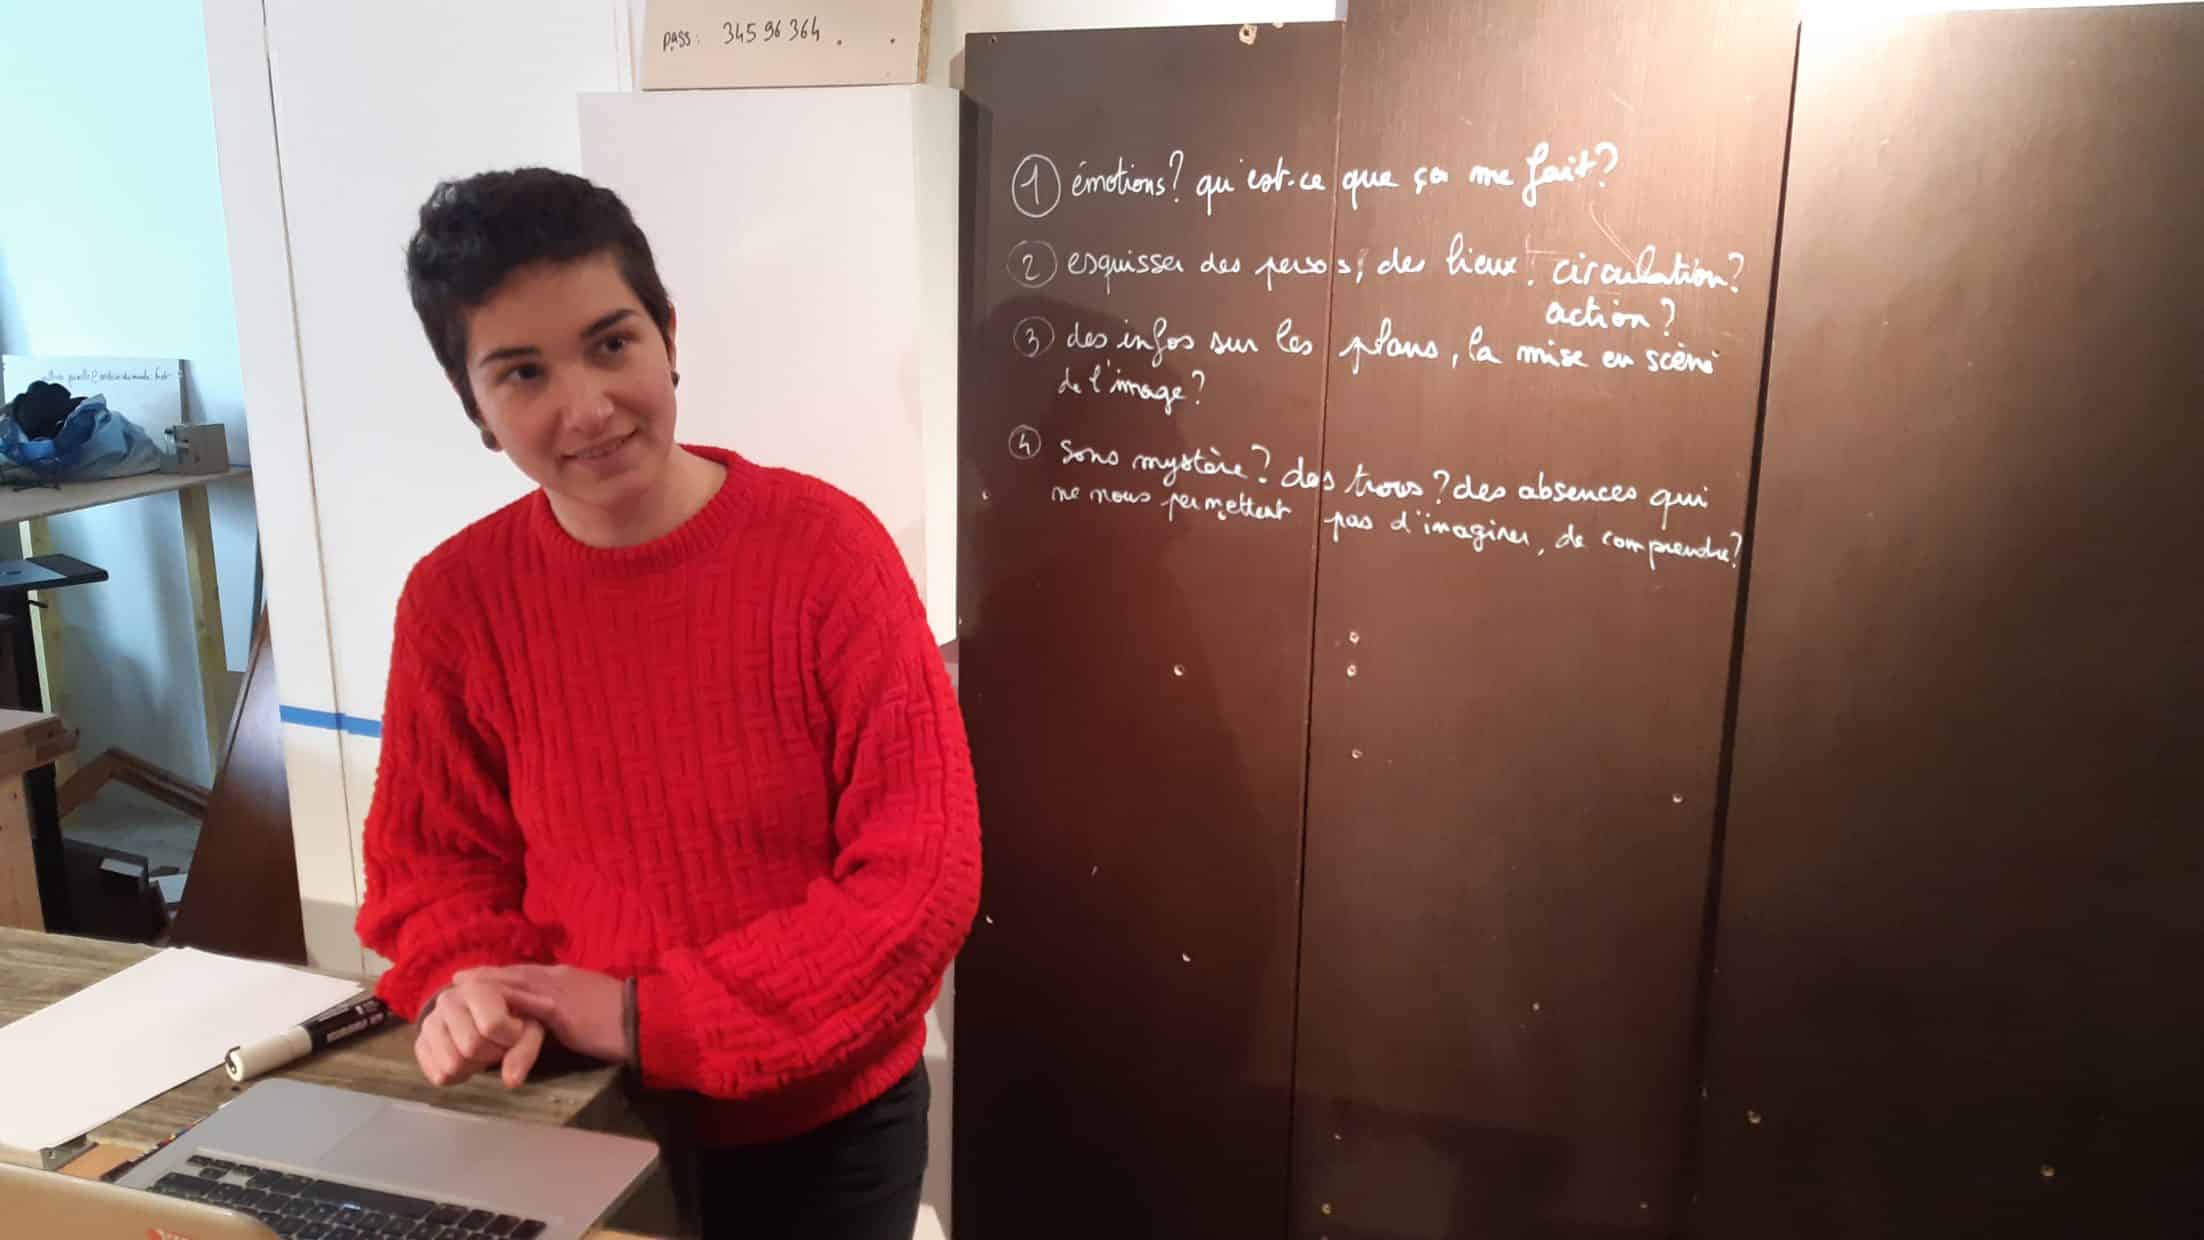 pass: 345 96 364
① émotions? qu'est-ce que ça me fait?
② esquisser des persos, des lieux! circulation?
action?
③ des infos sur les plans, la mise en scène
de l'image?
④ sons mystère? des trous? des absences qui
ne nous permettent pas d'imaginer, de comprendre?